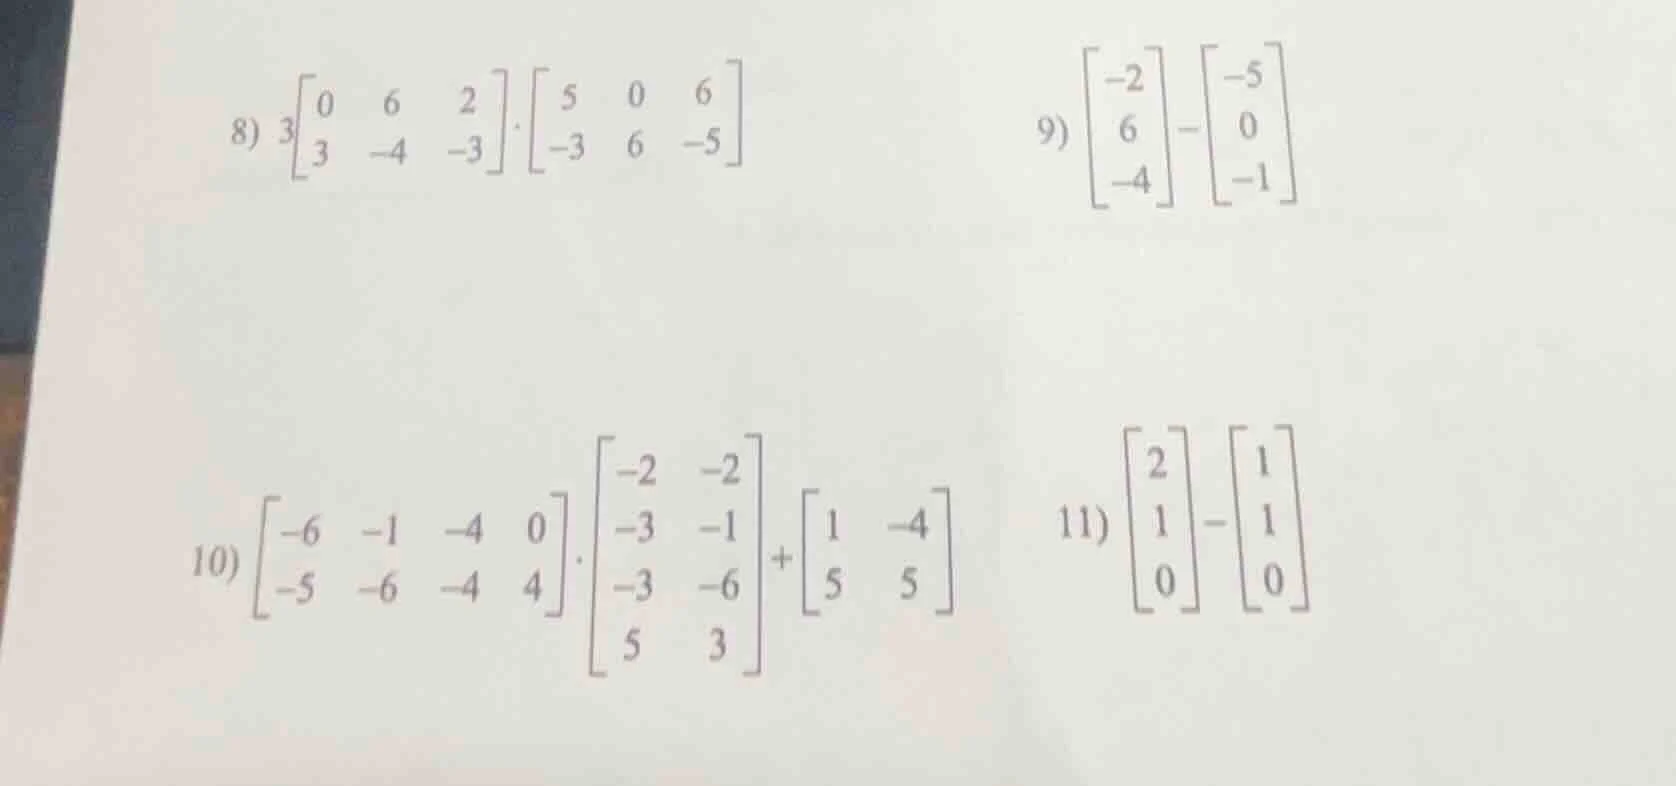 8) 3[0 6 2
3 -4 -3] · [5 0 6
-3 6 -5]
9) [-2
6
-4] - [-5
0
-1]
10) [-6 -1 -4 0
-5 -6 -4 4] · [-2 -2
-3 -1
-3 -6
5 3] + [1 -4
5 5]
11) [2
1
0] - [1
1
0]